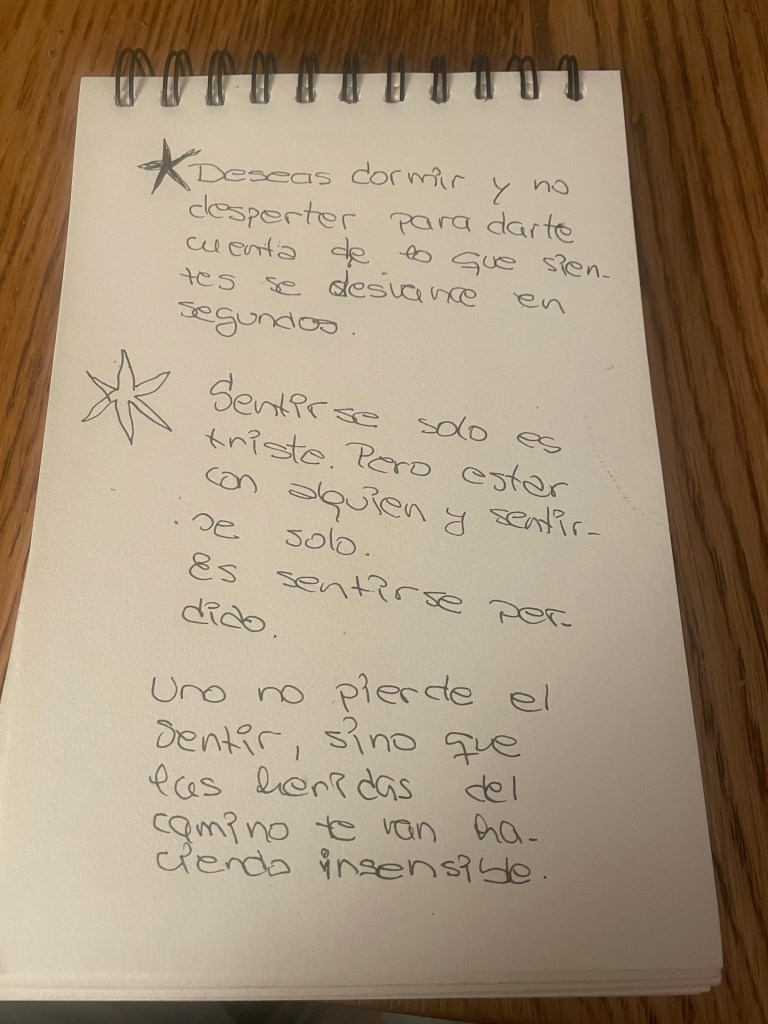 Deseas dormir y no
desperter para darte
cuenta de lo que sien-
tes se desvance en
segundos.
Sentirse solo es
triste. Pero ester
con alguien y sentir-
se solo.
Es sentirse per-
dido.
Uno no pierde el
sentir, sino que
las heridas del
camino te van ha-
ciendo insensible.